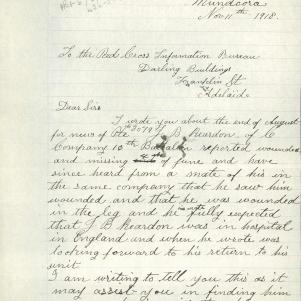 Mundoora
Nov 11th 1918.
To the Red Cross Information Bureau
Darling Building
Franklin St
Adelaide
Dear Sirs
I wrote you about the end of August
for news of Pte J B Reardon of C
Company 10th Battalion reported wounded
and missing of June and have
since heard from a mate of his in
the same company that he saw him
wounded and that he was wounded
in the leg and he fully expected
that J B Reardon was in hospital
in England and when he wrote was
looking forward to his return to his
unit
I am writing to tell you this as it
may assist you in finding him